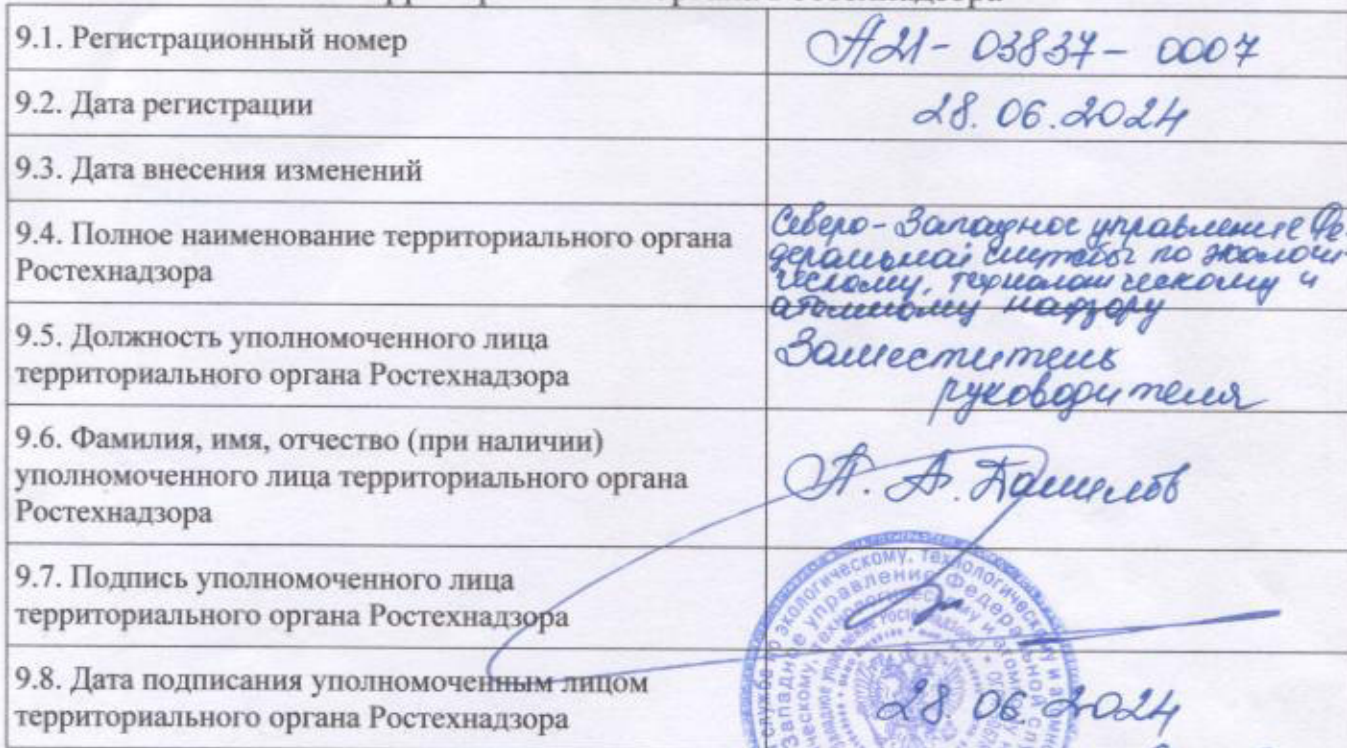 9.1. Регистрационный номер
А21-03837-0007
9.2. Дата регистрации
28.06.2024
9.3. Дата внесения изменений
9.4. Полное наименование территориального органа
Ростехнадзора
Северо-Западное управление Фе-
деральной службы по экологи-
ческому, технологическому и
атомному надзору
9.5. Должность уполномоченного лица
территориального органа Ростехнадзора
Заместитель
руководителя
9.6. Фамилия, имя, отчество (при наличии)
уполномоченного лица территориального органа
Ростехнадзора
А. А. Данилов
9.7. Подпись уполномоченного лица
территориального органа Ростехнадзора
9.8. Дата подписания уполномоченным лицом
территориального органа Ростехнадзора
28 06 2024